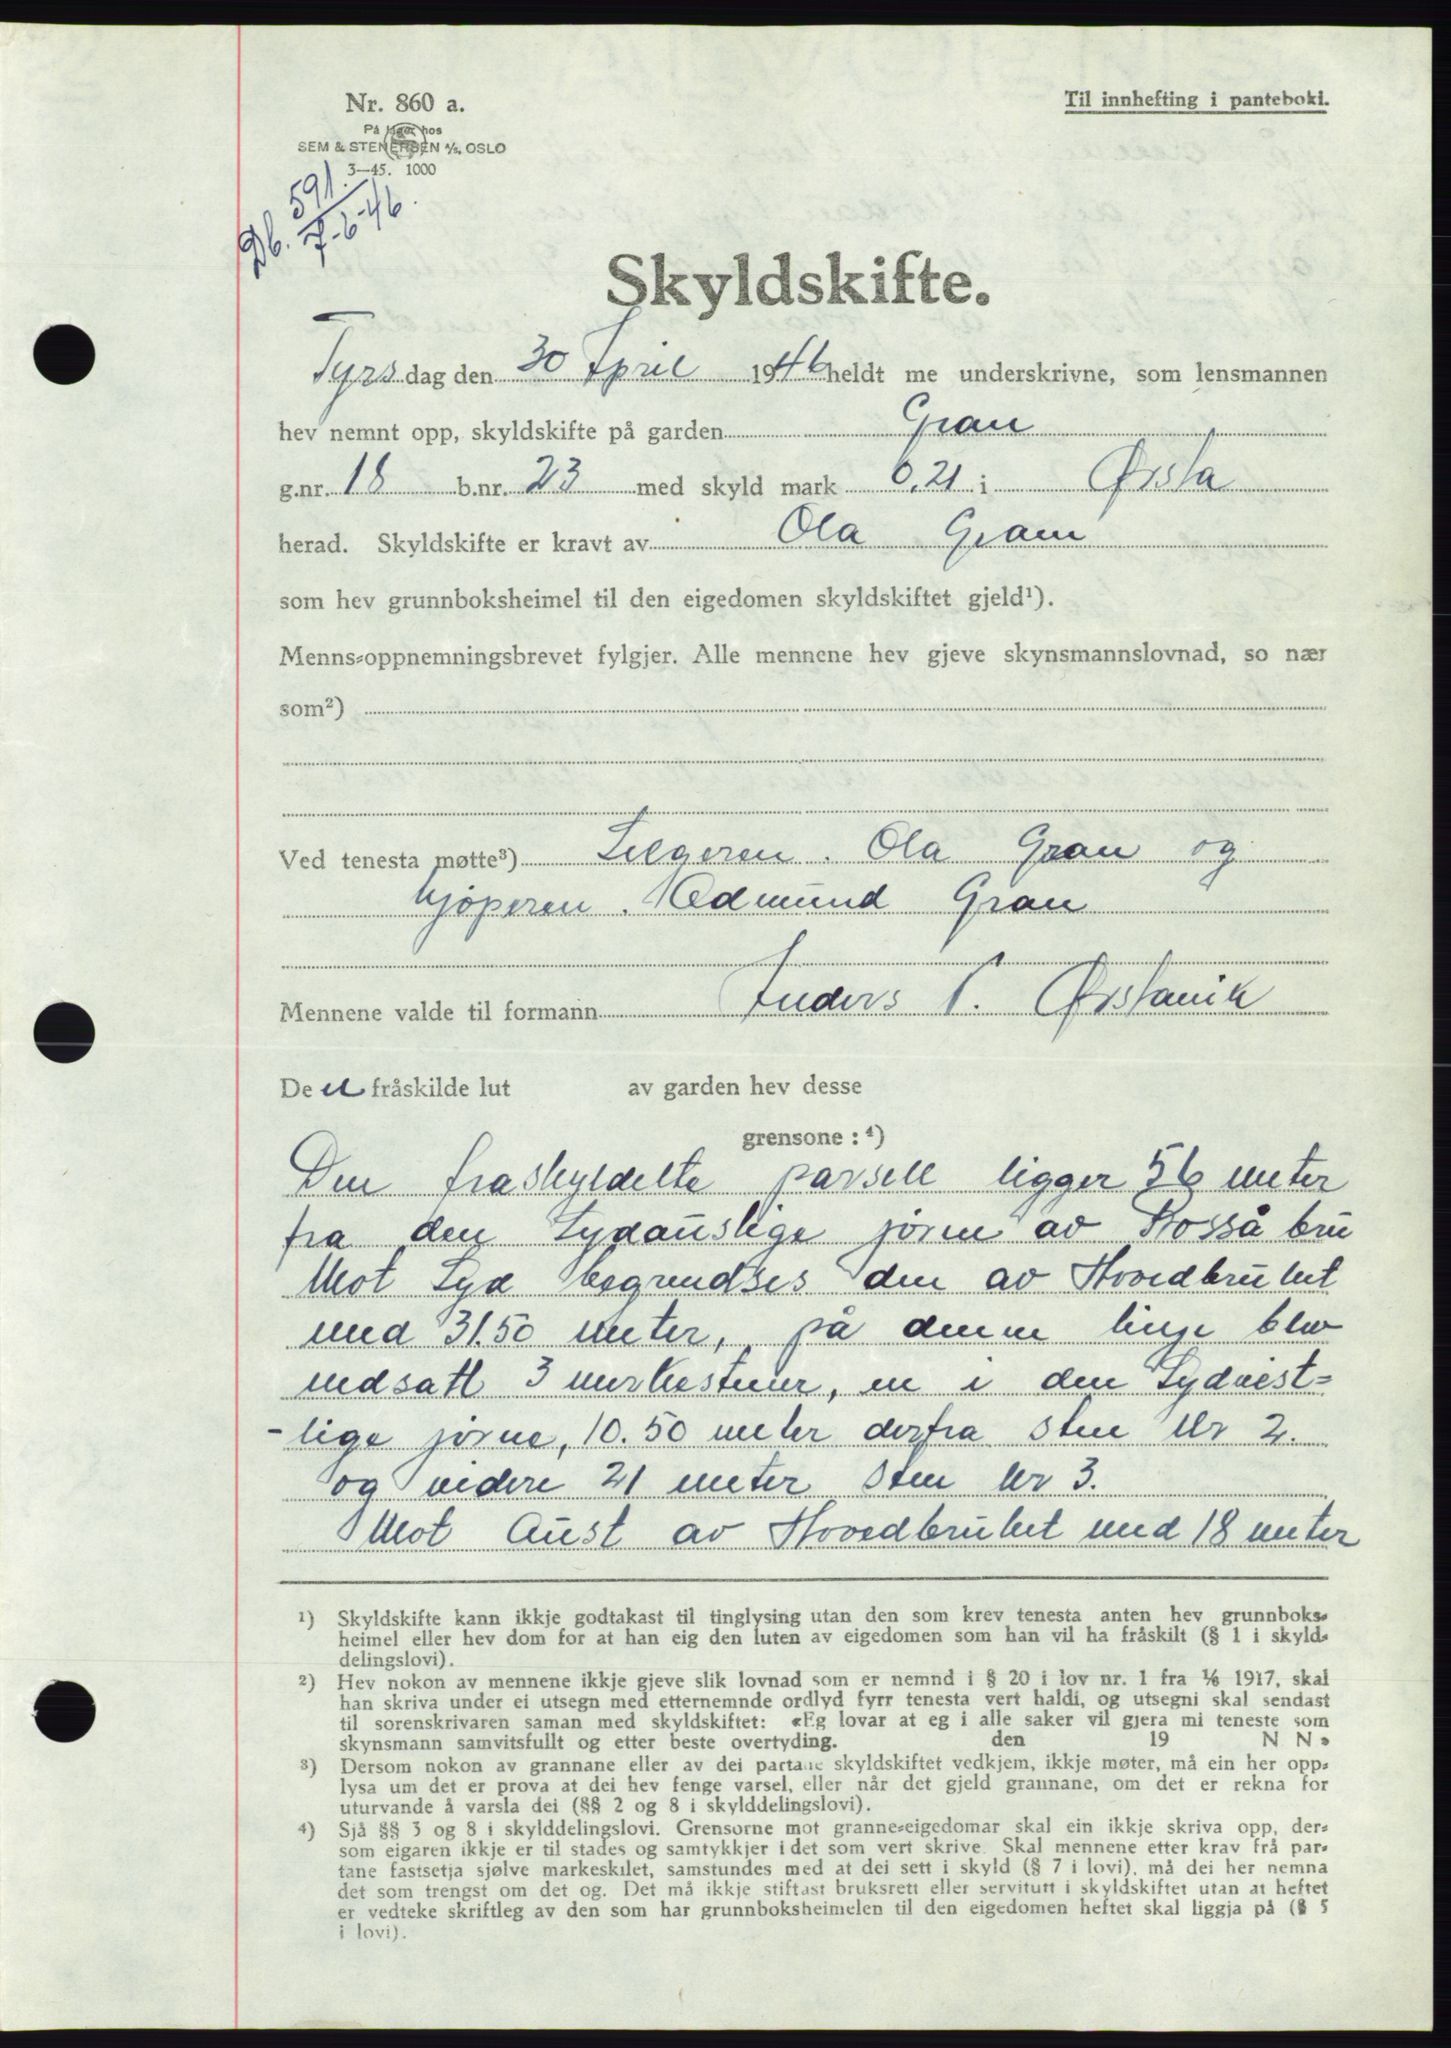 Nr. 860 a.
Til innhefting i panteboki.
På lager hos
SEM & STENERSEN A/S, OSLO
3—45. 1000
Db. 591/7-6-46.
Skyldskifte.
Tyrsdag den 30 April 1946 heldt me underskrivne, som lensmannen
hev nemnt opp, skyldskifte på garden Gran
g.nr. 18 b.nr. 23 med skyld mark 0,21 i Ørsta
herad. Skyldskifte er kravt av Ola Gram
som hev grunnboksheimel til den eigedomen skyldskiftet gjeld¹).
Menns-oppnemningsbrevet fylgjer. Alle mennene hev gjeve skynsmannslovnad, so nær
som²)
Ved tenesta møtte³) Selgeren. Ola Gran og
kjøperen. Odmund Gran
Mennene valde til formann Anders P. Ørstavik
Den fråskilde lut av garden hev desse
grensone : ⁴)
Den fraskyldelte parsell ligger 56 meter
fra den Sydaustlige jørne av Rosså bru
Mot Syd begrendses den av Hovedbruket
med 31.50 meter, på denne linje blev
nedsatt 3 merkestener, en i den Sydvest=
-lige jørne, 10.50 meter derfra sten Nr 2.
og videre 21 meter sten Nr 3.
Mot Aust av Hovedbruket med 18 meter
¹) Skyldskifte kann ikkje godtakast til tinglysing utan den som krev tenesta anten hev grunnboks-
heimel eller hev dom for at han eig den luten av eigedomen som han vil ha fråskilt (§ 1 i skyld-
delingslovi).
²) Hev nokon av mennene ikkje gjeve slik lovnad som er nemnd i § 20 i lov nr. 1 fra 1/6 1917, skal
han skriva under ei utsegn med etternemnde ordlyd fyrr tenesta vert haldi, og utsegni skal sendast
til sorenskrivaren saman med skyldskiftet: «Eg lovar at eg i alle saker vil gjera mi teneste som
skynsmann samvitsfullt og etter beste overtyding. den 19 N N»
³) Dersom nokon av grannane eller av dei partane skyldskiftet vedkjem, ikkje møter, må ein her opp-
lysa um det er prova at dei hev fenge varsel, eller når det gjeld grannane, om det er rekna for
uturvande å varsla dei (§§ 2 og 8 i skylddelingslovi).
⁴) Sjå §§ 3 og 8 i skylddelingslovi. Grensorne mot granne-eigedomar skal ein ikkje skriva opp, der-
som eigaren ikkje er til stades og samtykkjer i det som vert skrive. Skal mennene etter krav frå par-
tane fastsetja sjølve markeskilet, samstundes med at dei sett i skyld (§ 7 i lovi), må dei her nemna
det som trengst om det og. Det må ikkje stiftast bruksrett eller servitutt i skyldskiftet utan at heftet
er vedteke skriftleg av den som har grunnboksheimelen til den eigedomen heftet skal liggja på (§ 5
i lovi).